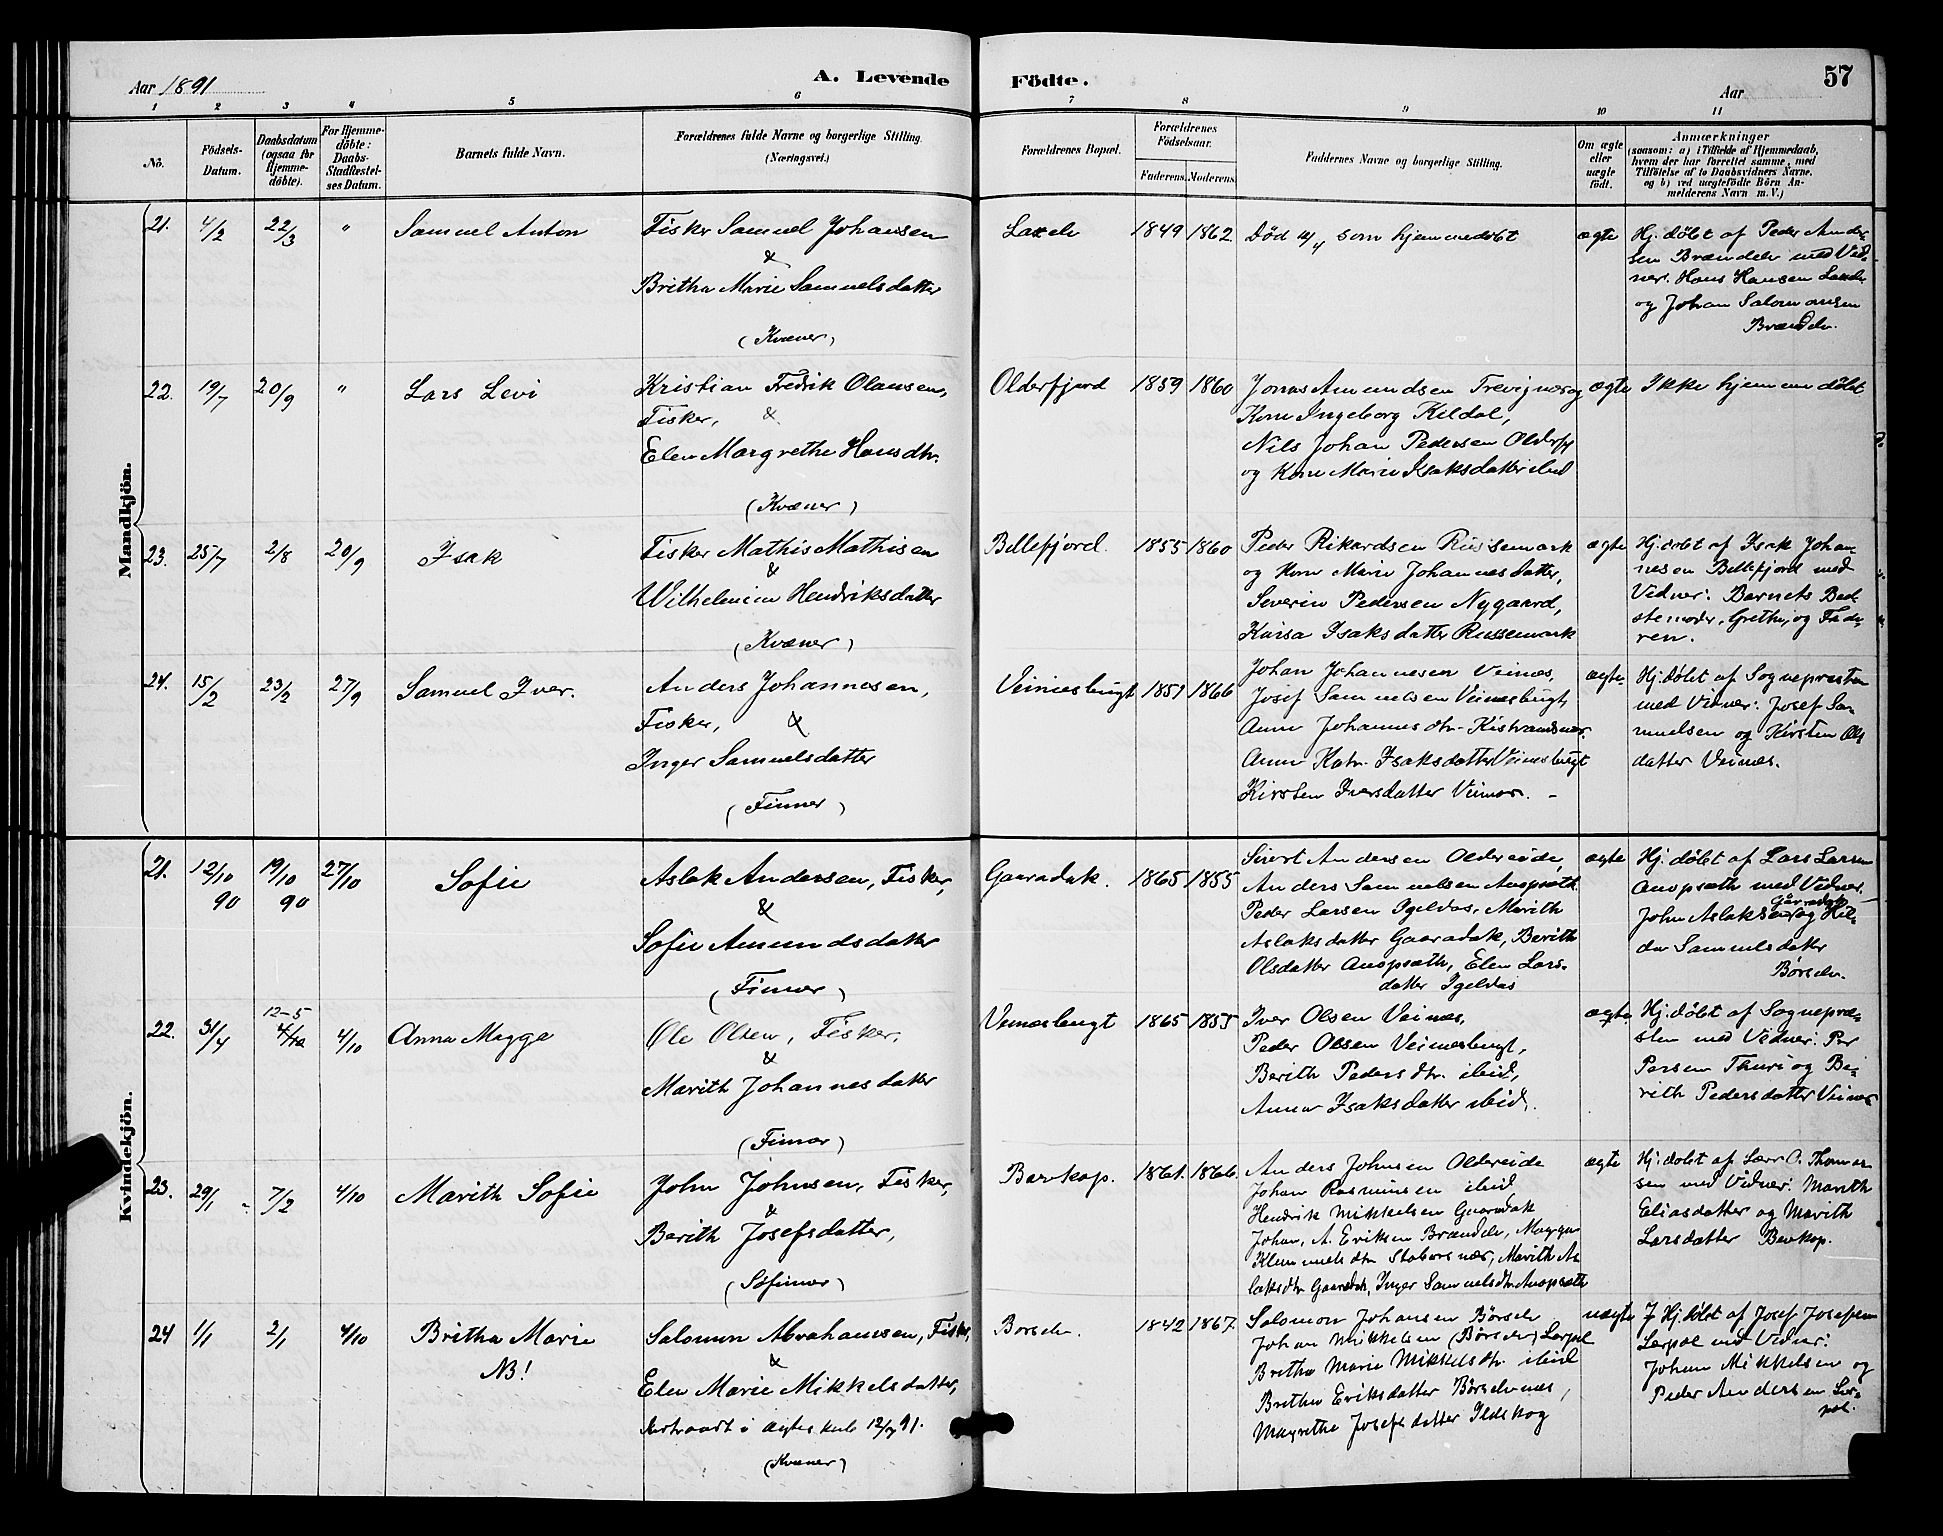 Aar 1891
A. Levende
Födte.
57
Aar
1 2 3 4 5 6 7 8 9 10 11
No.
Födsels-
Datum.
Daabsdatum
(ogsaa for
Hjemme-
döbte).
For Hjemme-
döbte:
Daabs-
Stadfæstel-
ses Datum.
Barnets fulde Navn.
Forældrenes fulde Navne og borgerlige Stilling.
(Næringsvei.)
Forældrenes Bopæl.
Forældrenes
Födselsaar.
Faderens. Moderens.
Faddernes Navne og borgerlige Stilling.
Om ægte
eller
uægte
födt.
Anmærkninger
(saasom: a) i Tilfælde af Hjemmedaab,
hvem der har forrettet samme, med
Tilföielse af to Daabsvidners Navne.
og b) ved uægtefödte Börn An-
melderens Navn m.V.)
Mandkjön.
21. 4/2 22/3 " Samuel Anton
Fisker Samuel Johansen
&
Britha Marie Samuelsdatter
(Kvæner)
1849 1862
Død som hjemmedøbt
ægte
Hj. døbt af Peder Ander-
sen Brændelv med Vid-
ner: Hans Hansen
og Johan Salomonsen
Brændelv.
22. 19/7 20/9 " Lars Levi
Kristian Fredrik Olausen,
Fisker, &
Elen Margrethe Hansdtr.
(Kvæner)
Olderfjord 1859 1860
Jonas Amundsen Trevignes og
Kone Ingeborg Kildal,
Nils Johan Pedersen Olderfj
og Kone Marie Isaksdatter ibid
ægte
Ikke hjemmedøbt
23. 25/7 2/8 20/9 Isak
Fisker Mathis Mathisen
&
Wilhelmine Hendriksdatter
(Kvæner)
Billefjord. 1855 1860
Peder Rikardsen Russemark
og Kone Marie Johannesdatter,
Severin Pedersen Nygaard,
Kaisa Isaksdatter Russemark
ægte
Hj. døbt af Isak Johan-
nesen Billefjord med
Vidner: Barnets Bed-
stemoder, Grethe, og Fade-
ren.
24. 15/2 23/2 27/9 Samuel Iver.
Anders Johannesen,
Fisker, &
Inger Samuelsdatter
(Finner)
Veinesbugt 1851 1866
Johan Johannesen Veines,
Josef Samuelsen Veinesbugt,
Anne Johannesdtr. Kistrandnæs.
Anne Katr. Isaksdatter Veinesbugt
Kirsten Iversdatter Veines. -
ægte.
Hj. døbt af Sognepresten
med Vidner: Josef Sa-
muelsen og Kirsten Ols
datter Veines.
Kvindekjön.
21. 12/10 90 19/10 90 27/10 Sofie
Aslak Andersen, Fisker,
&
Sofie Amundsdatter
(Finner)
Gaaradak. 1865 1855
Sivert Andersen Oldereide,
Anders Samuelsen Auopsæth
Peder Larsen Igeldas, Marith
Aslaksdatter Gaaradak, Berith
Olsdatter Auopsæth, Elen Lars-
datter Igeldas
ægte
Hj. døbt af Lars Larsen
Auopsæth med Vidner.
Gåradak
John Aslaksen og Hil-
da Samuelsdatter
Børselv.
22. 31/4 12-5 4/10 4/10 Anna Magga
Ole Olsen, Fisker,
&
Marith Johannesdatter
(Finner)
Veinesbugt 1865 1855
Iver Olsen Veines,
Peder Olsen Veinesbugt,
Berith Pedersdtr. ibid,
Anna Isaksdatter ibid.
ægte.
Hj. døbt af Sognepre-
sten med Vidner: Per
Persen Thuri og Be-
rith Pedersdatter Veines
23. 29/1 7/2 4/10 Marith Sofie
John Johnsen, Fisker,
&
Berith Josefsdatter,
(Søfinner)
Børkop. 1861. 1866.
Anders Johnsen Oldereide
Johan Rasmussen ibid
Hendrik Mikkelsen Gaaradak
Johan, A. Eriksen Brændelv, Magga
Klemmetsdtr. Stabursnæs, Marith As
laksdtr Gaaradak, Inger Samuelsdtr. Auopsæth
ægte
Hj. døbt af Lærer O. Thomas-
sen med Vidner: Marith
Eliasdatter og Marith
Larsdatter Børkop.
24 1/1 2/1 4/10 Britha Marie
NB!
Salomon Abrahamsen, Fisker,
&
Elen Marie Mikkelsdatter,
indtraadt i ægteskab 12/7 91.
(Kvæner)
Børselv. 1842 1867
Salomon Johansen Børselv
Johan Mikkelsen (Børselv) Lerpol
Britha Marie Mikkelsdtr. ibid
Britha Eriksdatter Børselvnes,
Magrethe Josefsdatter Ildskog
uægte
Hj. døbt af Josef Josefsen
Lerpol med Vidner:
Johan Mikkelsen og
Peder Andersen Ler-
pol.